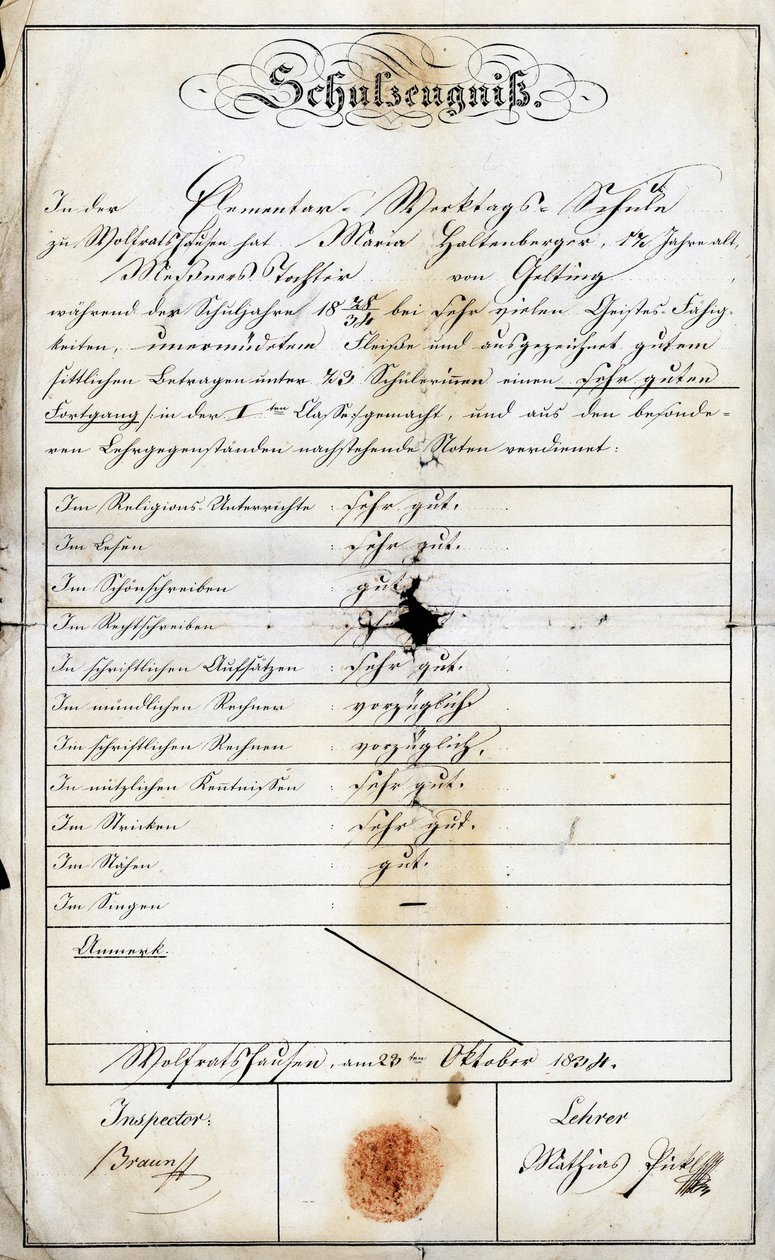 Schulzeugniß.
In der Elementar-Werktags-Schule
zu Wolfratshausen hat Maria Haltenberger, Jahre alt,
Meßners Tochter von Gelting
während der Schuljahre 18 28/34 bei sehr vielen Geistes-Fähig-
keiten, unermüdetem Fleiße und ausgezeichnet gutem
sittlichen Betragen unter Schülerinen einen sehr guten
Fortgang /: in der I ten Classe :/ gemacht, und aus den besonde-
ren Lehrgegenständen nachstehende Noten verdienet:
Im Religions-Unterrichte : sehr gut.
Im Lesen : sehr gut.
Im Schönschreiben : gut.
Im Rechtschreiben :
In schriftlichen Aufsätzen : sehr gut.
Im mündlichen Rechnen : vorzüglich
Im schriftlichen Rechnen : vorzüglich.
In nützlichen Kenntnissen : sehr gut.
Im Stricken : sehr gut.
Im Nähen : gut.
Im Singen : —
Anmerk.
Wolfratshausen, am 23ten Oktober 1834.
Inspector:
Braun
Lehrer
Mathias Pickl